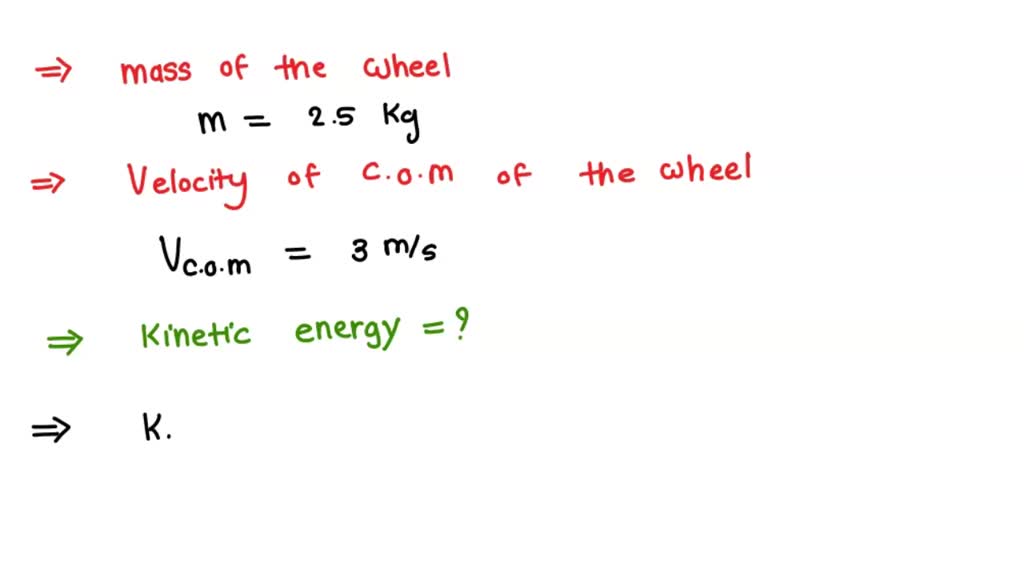 ⇒ mass of the wheel
m = 2.5 Kg
⇒ Velocity of c.o.m of the wheel
Vc.o.m = 3 m/s
⇒ Kinetic energy = ?
⇒ K.